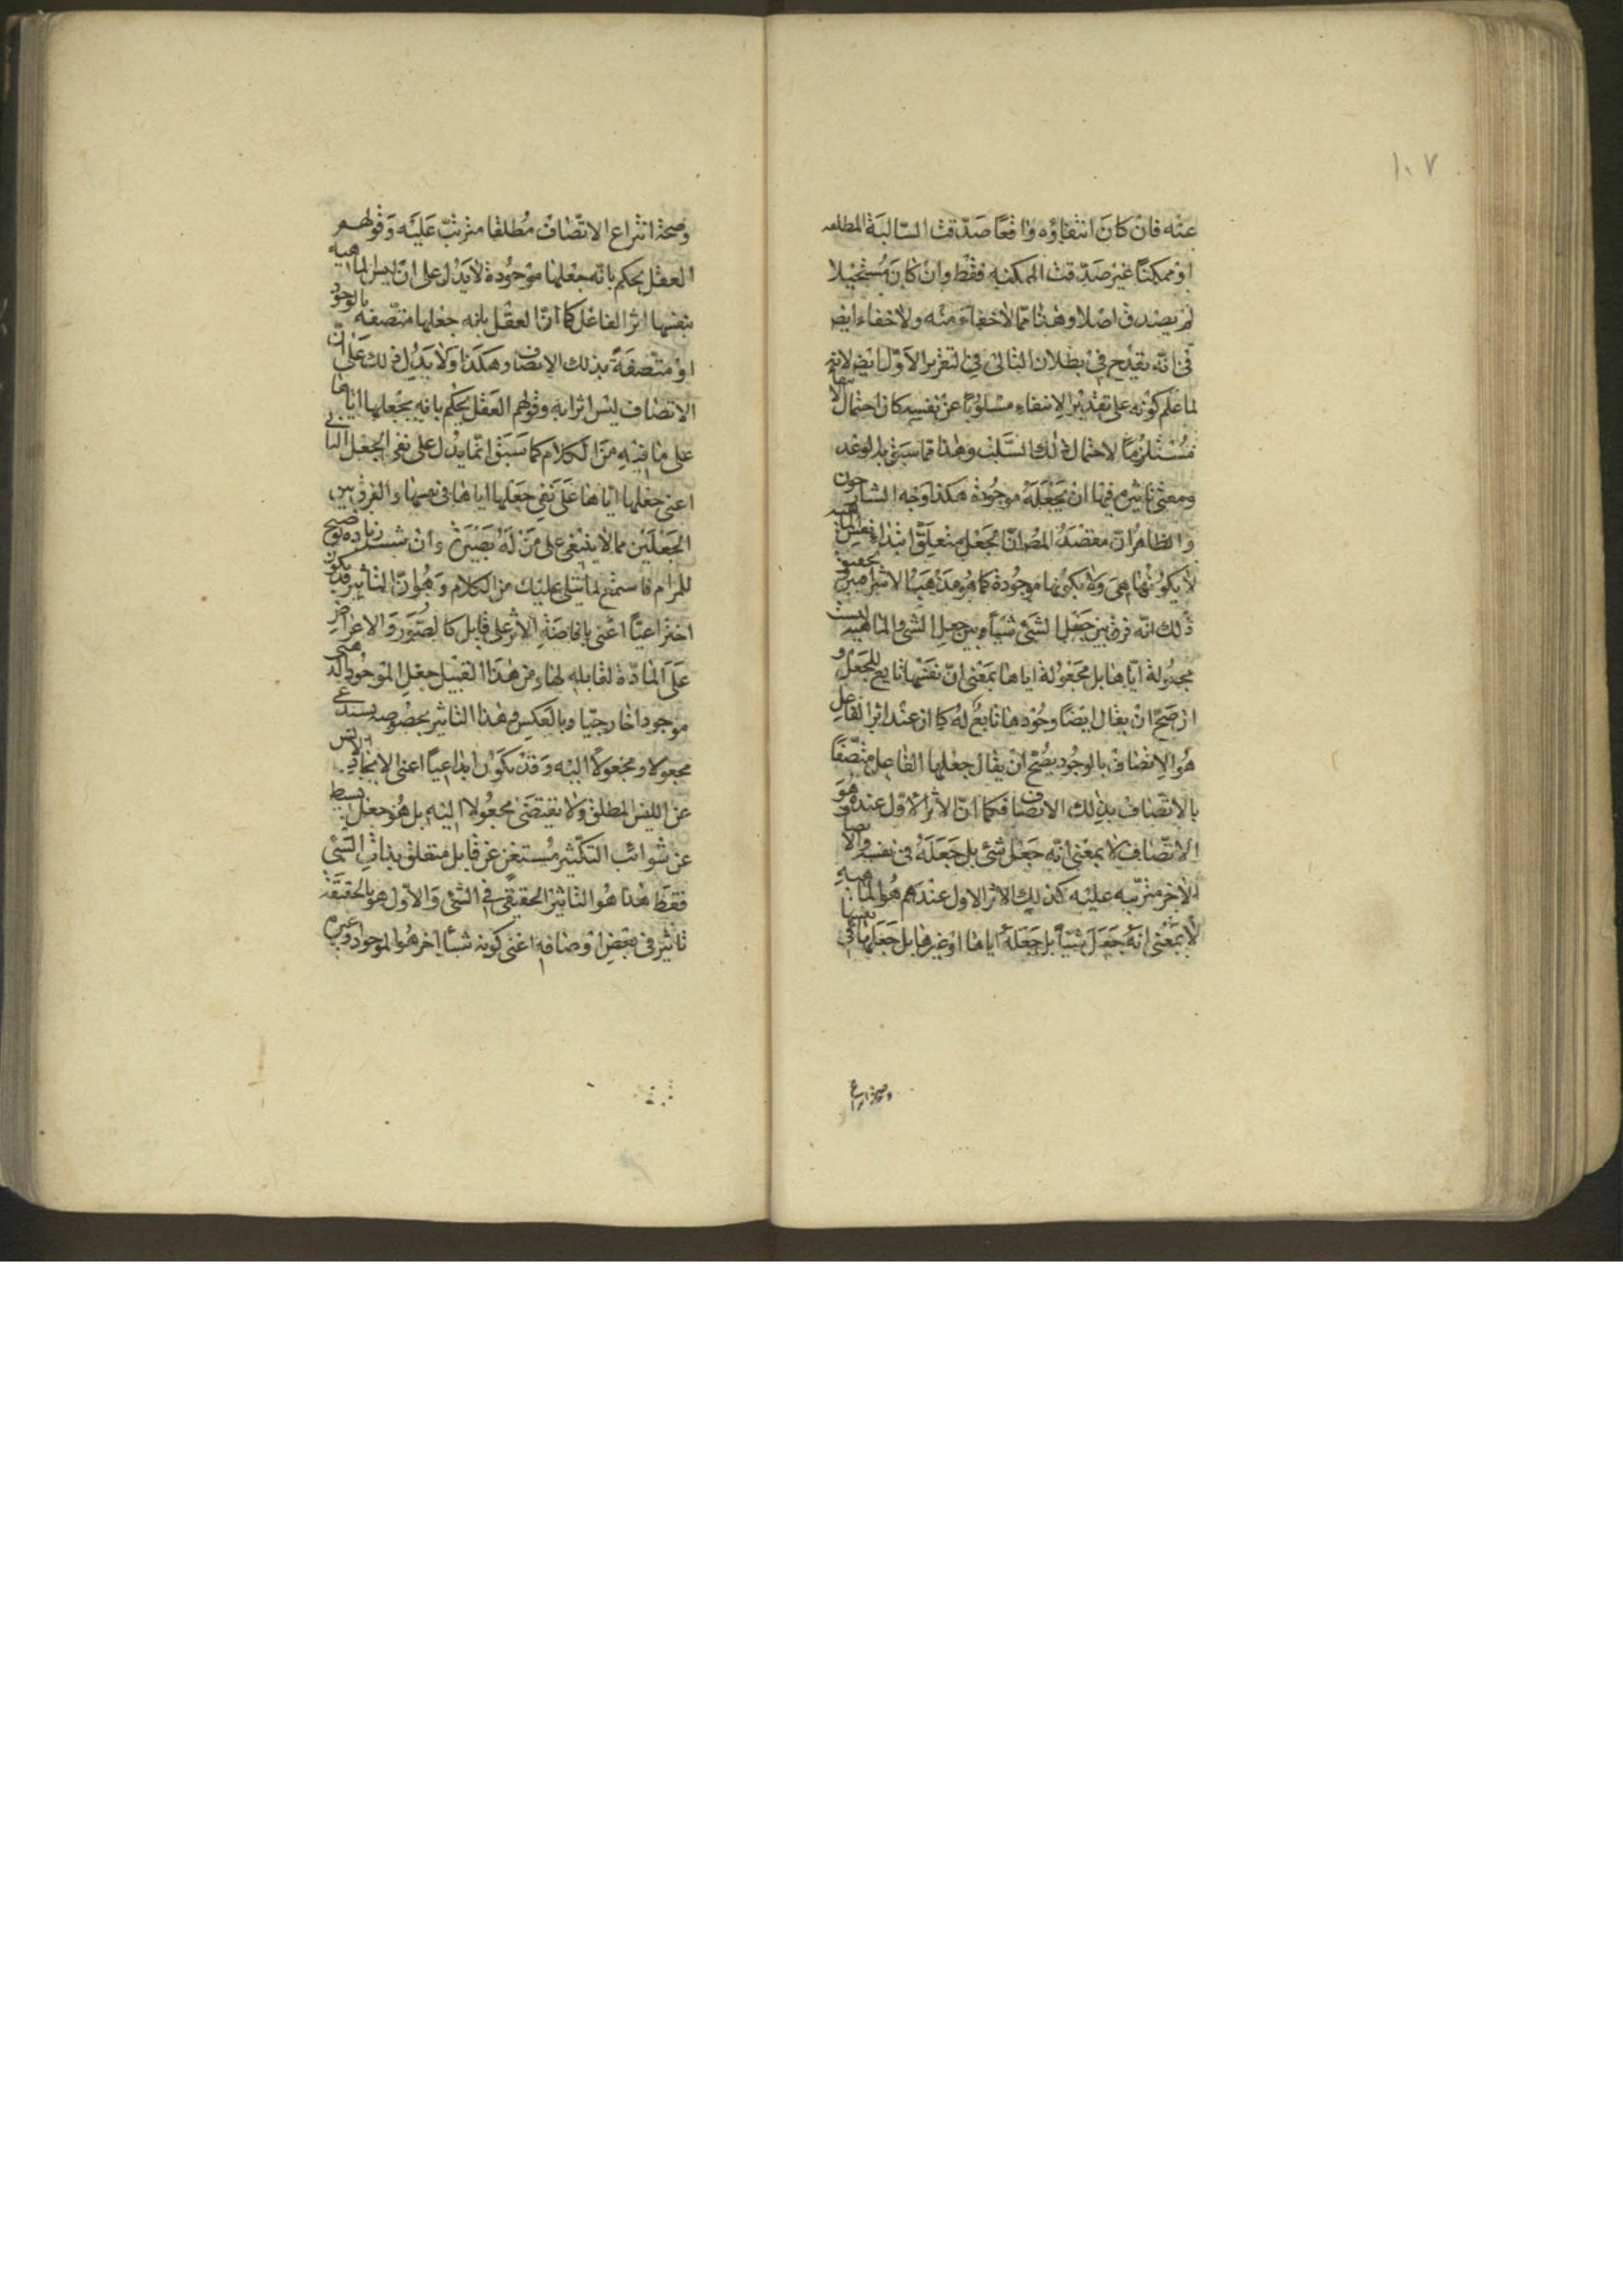 ١٠٧
عنه فان كان انتفاؤه واقعًا صدقت السالبة المطلقه
او ممكنًا غير صدقت الممكنه فقط وان كان مستحيلا
لم يصدق اصلا وهذا مما لاخفاء منه ولاخفاء ايض
فى انه يقدح فى بطلان التالى فى التقرير الاول ايض لانه
لما علم كونه على تقدير الانتفاء مسلوبًا عن نفسه كان احتمال الانتفاء
مستلزمًا لاحتمال ذلك السلب وهذا مما سبق به الوعد
ومعنى تاثيره فيها ان يجعله موجودة هكذا وجه الشارحون
والظاهر ان مقصد المص ان الجعل متعلق ابتداء بنفس الماهيه
لا بكونها هى ولا بكونها موجودة كما هو مذهب الاشراقيين تحقيق
ذلك انه فرق بين جعل الشئ شيئا وبين جعل الشئ والماهيه ليست
مجعولة اياها بل مجعولة اياها بمعنى ان نفسها تابع للجعل و
ان صح ان يقال ايضا وجودها تابع له كما ان عند اثر الفاعل
هو الاتصاف بالوجود يصح ان يقال جعلها الفاعل متصفًا
بالاتصاف بذلك الاتصاف فكما ان الاثر الاول عنده هو
الاتصاف لا بمعنى انه جعل شئ بل جعله فى نفسه والاتصاف
الاخر مترتبه عليه كذلك الاثر الاول عندهم هو الماهيه
لا بمعنى انه جعل شيئا بل جعله اياها او غيرها بل جعلها فى نفسها
وصحة انتزاع
وصحة انتزاع الاتصاف مطلقا مترتب عليه وقولهم
العقل يحكم بانه جعلها موجودة لا يدل على ان ليس الماهيه
بنفسها اثر الفاعل كما ان العقل بانه جعلها متصفه بالوجود
او متصفة بذلك الاتصاف وهكذا ولا يدل ذلك على ان
الاتصاف ليس اثرا به وقولهم العقل يحكم بانه يجعلها اياها
على ما فيه من الكلام كما سبق انما يدل على نفى الجعل الثانى
اعنى جعلها اياها على نفى جعلها اياها فى نفسها والفرق بين
الجعلين مما لا ينبغى على من له بصيرة وان شئت زياده توضيح
للمرام فاستمع لما يتلى عليك من الكلام وهو ان التاثير قد يكون
اختراعيًا اعنى بافاضة الاثر على قابل كالصور والاعراض
على المادة القابله لها ومن هذا القبيل جعل الموجود الذهنى
موجودا خارجيا وبالعكس وهذا التاثير بخصوصه يستدعى
مجعولا ومجعولا اليه وقد يكون ابداعيًا اعنى الايجاد الايس
عن الليس المطلق ولا يقتضى مجعولا اليه بل هو جعل بسيط
عن شوائب التكثير مستغن عن قابل متعلق بذات الشئ
فقط هذا هو التاثير الحقيقى فى الشئ والاول هو بالحقيقة
تاثير فى بعض اوصافه اعنى كونه شيئا اخر هو الموجود وغيره